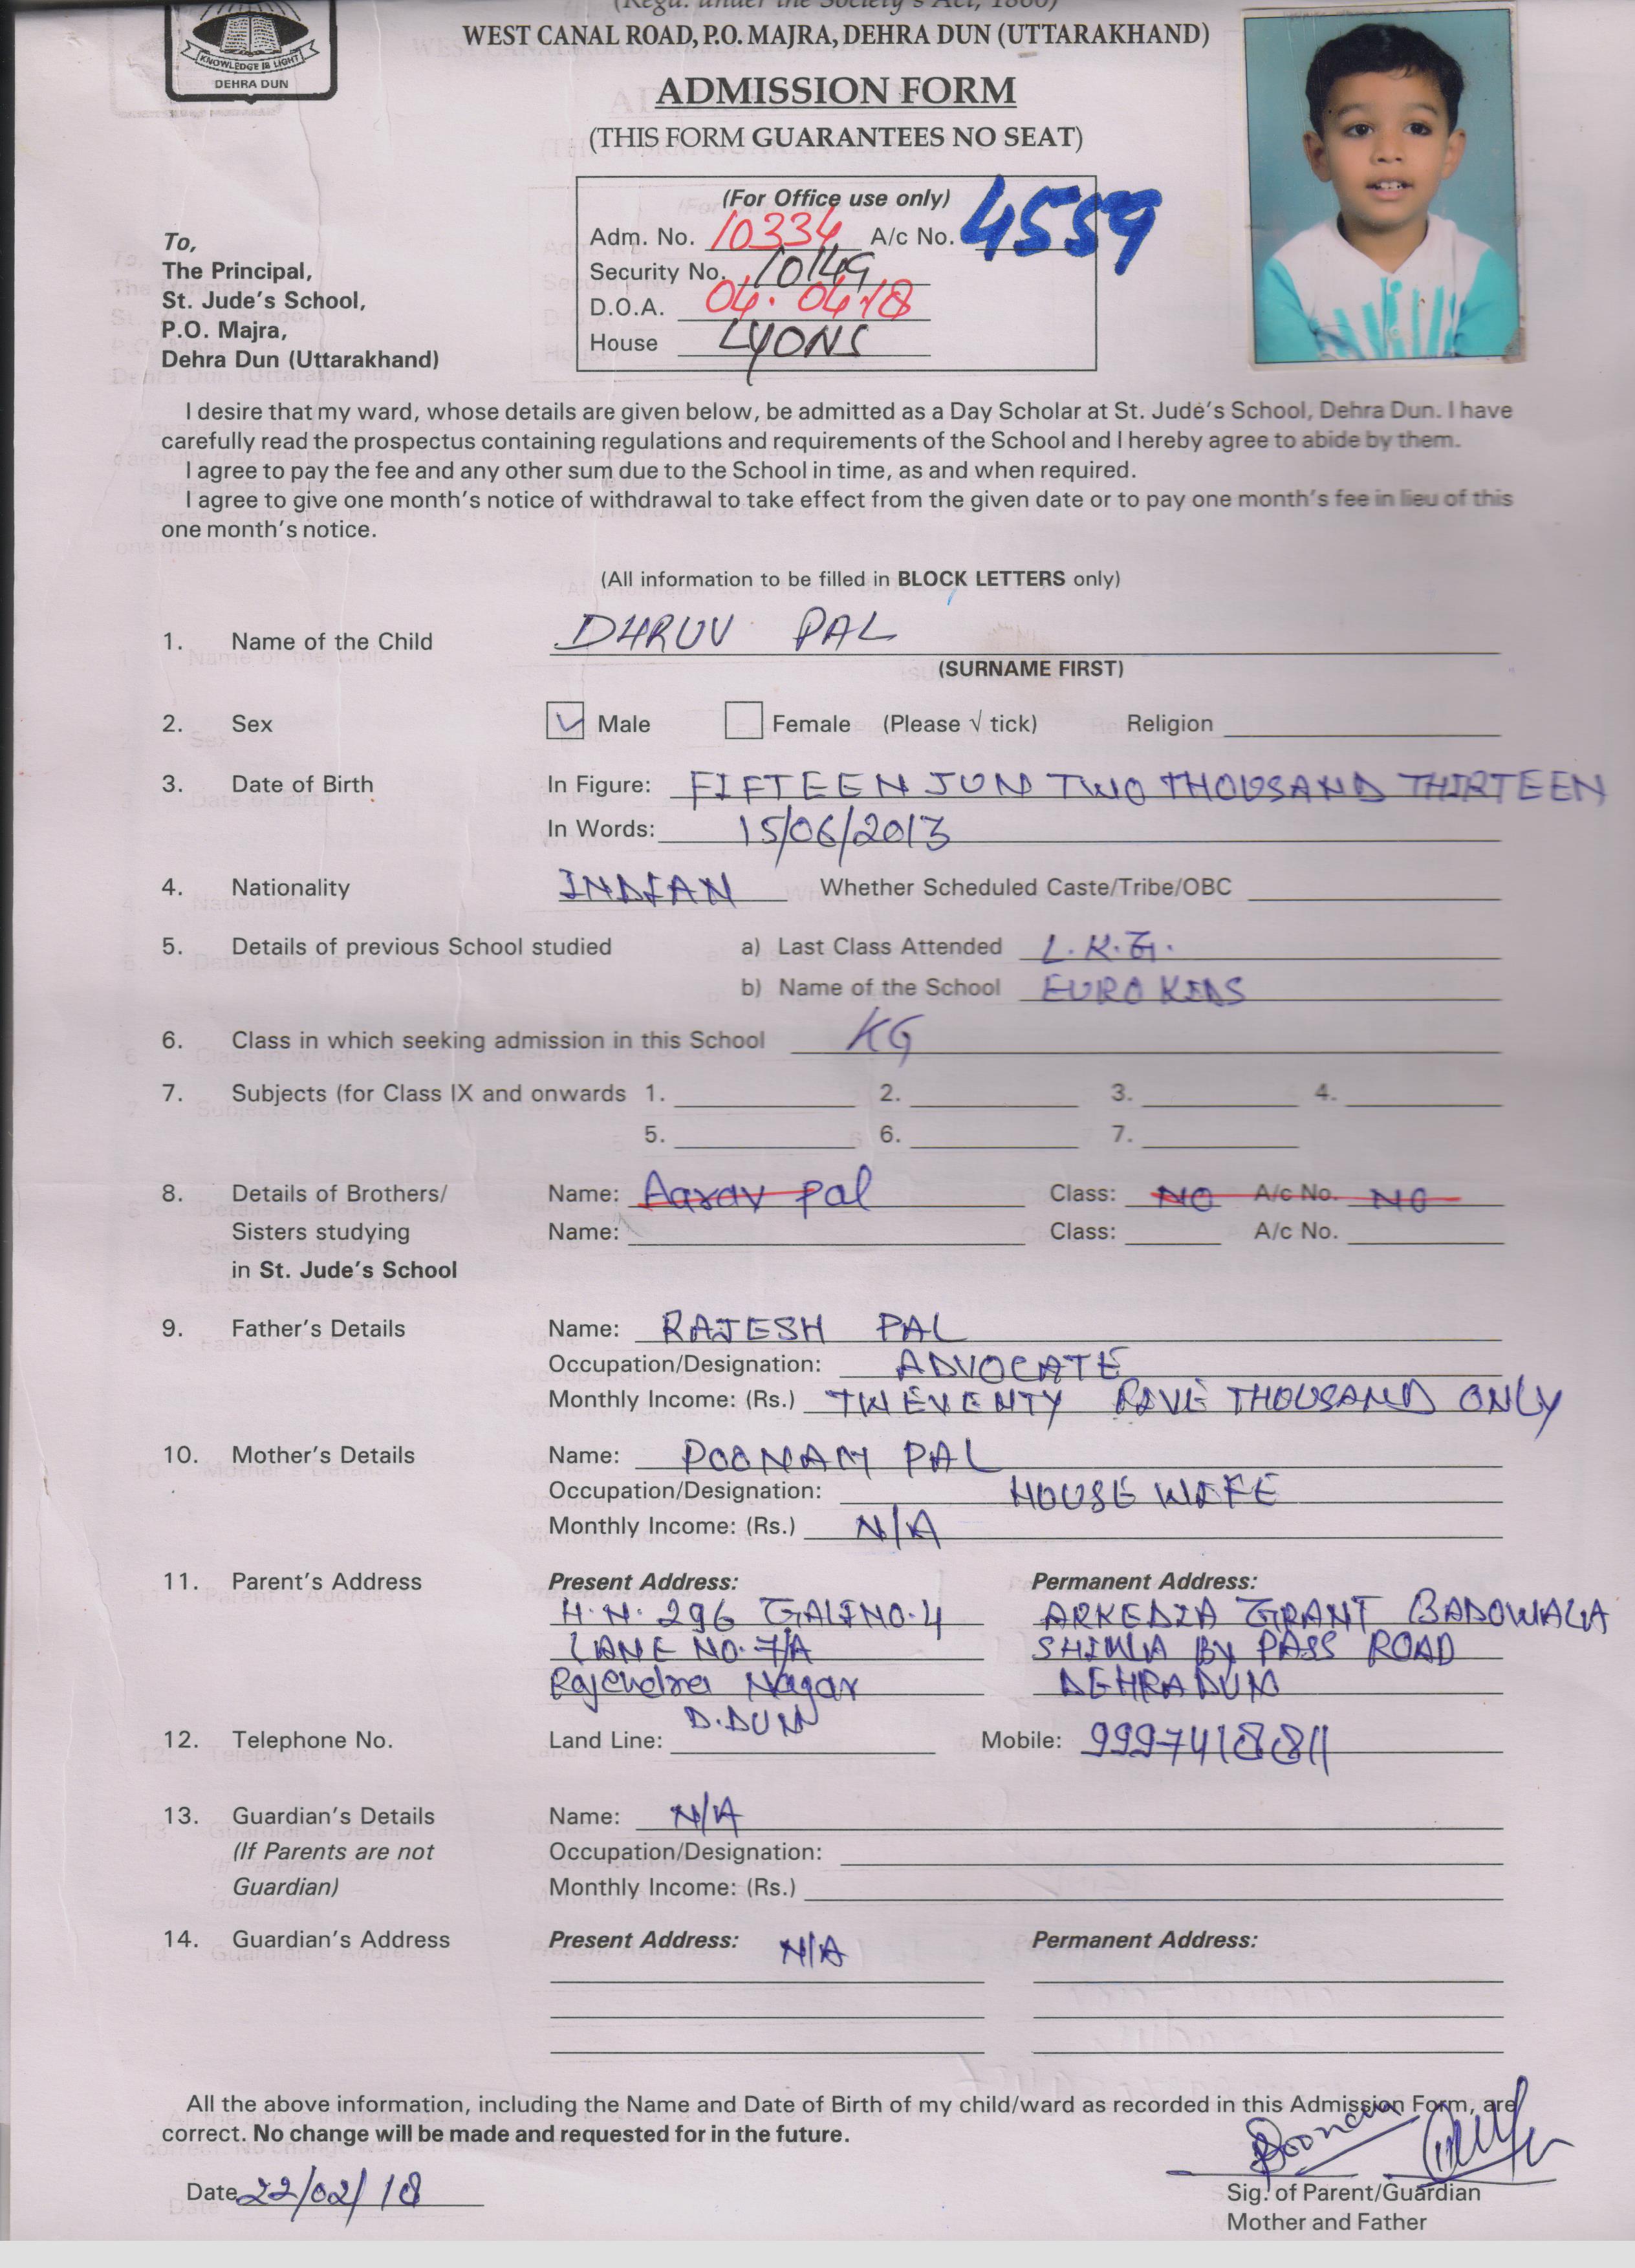 (Regd. under the Society's Act, 1860)
WEST CANAL ROAD, P.O. MAJRA, DEHRA DUN (UTTARAKHAND)
KNOWLEDGE IS LIGHT
DEHRA DUN
ADMISSION FORM
(THIS FORM GUARANTEES NO SEAT)
(For Office use only)
Adm. No. 10334 A/c No. 4559
Security No. 10149
D.O.A. 04.04.18
House LYONS
To,
The Principal,
St. Jude's School,
P.O. Majra,
Dehra Dun (Uttarakhand)
I desire that my ward, whose details are given below, be admitted as a Day Scholar at St. Jude's School, Dehra Dun. I have
carefully read the prospectus containing regulations and requirements of the School and I hereby agree to abide by them.
I agree to pay the fee and any other sum due to the School in time, as and when required.
I agree to give one month's notice of withdrawal to take effect from the given date or to pay one month's fee in lieu of this
one month's notice.
(All information to be filled in BLOCK LETTERS only)
1. Name of the Child DHRUV PAL
(SURNAME FIRST)
2. Sex Male Female (Please √ tick) Religion
3. Date of Birth In Figure: FIFTEEN JUN TWO THOUSAND THIRTEEN
In Words: 15/06/2013
4. Nationality INDIAN Whether Scheduled Caste/Tribe/OBC
5. Details of previous School studied a) Last Class Attended L.K.G.
b) Name of the School EURO KIDS
6. Class in which seeking admission in this School KG
7. Subjects (for Class IX and onwards 1. 2. 3. 4.
5. 6. 7.
8. Details of Brothers/ Name: Aarav pal Class: NO A/c No. NO
Sisters studying Name: Class: A/c No.
in St. Jude's School
9. Father's Details Name: RAJESH PAL
Occupation/Designation: ADVOCATE
Monthly Income: (Rs.) TWEVENTY FIVE THOUSAND ONLY
10. Mother's Details Name: POONAM PAL
Occupation/Designation: HOUSE WIFE
Monthly Income: (Rs.) N/A
11. Parent's Address Present Address: Permanent Address:
H.N. 296 GALI NO.4 ARKEDIA GRANT BADOWALA
LANE NO. 7/A SHIMLA BY PASS ROAD
Rajendra Nagar DEHRADUN
D.DUN
12. Telephone No. Land Line: Mobile: 9997418811
13. Guardian's Details Name: N/A
(If Parents are not Occupation/Designation:
Guardian) Monthly Income: (Rs.)
14. Guardian's Address Present Address: N/A Permanent Address:
All the above information, including the Name and Date of Birth of my child/ward as recorded in this Admission Form, are
correct. No change will be made and requested for in the future.
Poonam
Date 22/02/18
Sig. of Parent/Guardian
Mother and Father